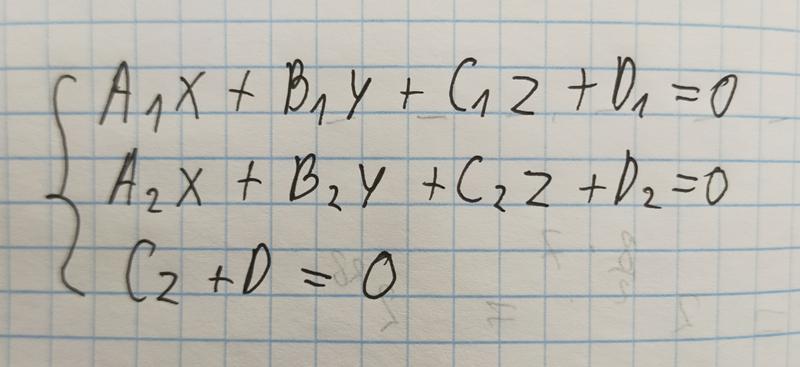 A₁x + B₁y + C₁z + D₁ = 0
A₂x + B₂y + C₂z + D₂ = 0
Cz + D = 0